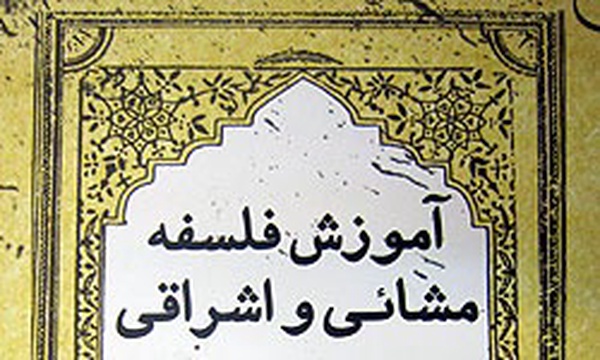 آموزش فلسفه
مشائی و اشراقی